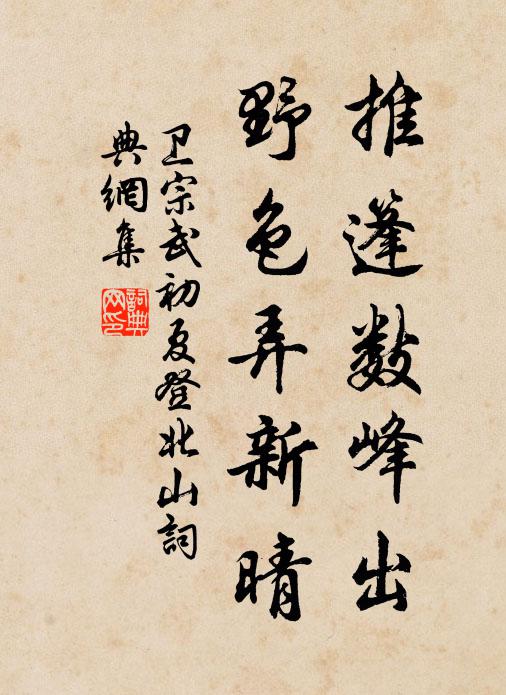 推篷数峰出
野色弄新晴
卫宗武初夏登北山詞
典網集
詞典
网印